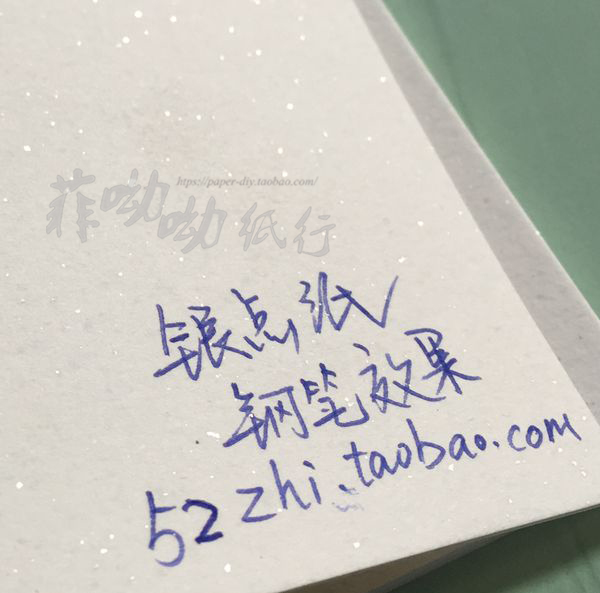 https://paper-diy.taobao.com/
菲呦呦纸行
银点纸
钢笔效果
52zhi.taobao.com